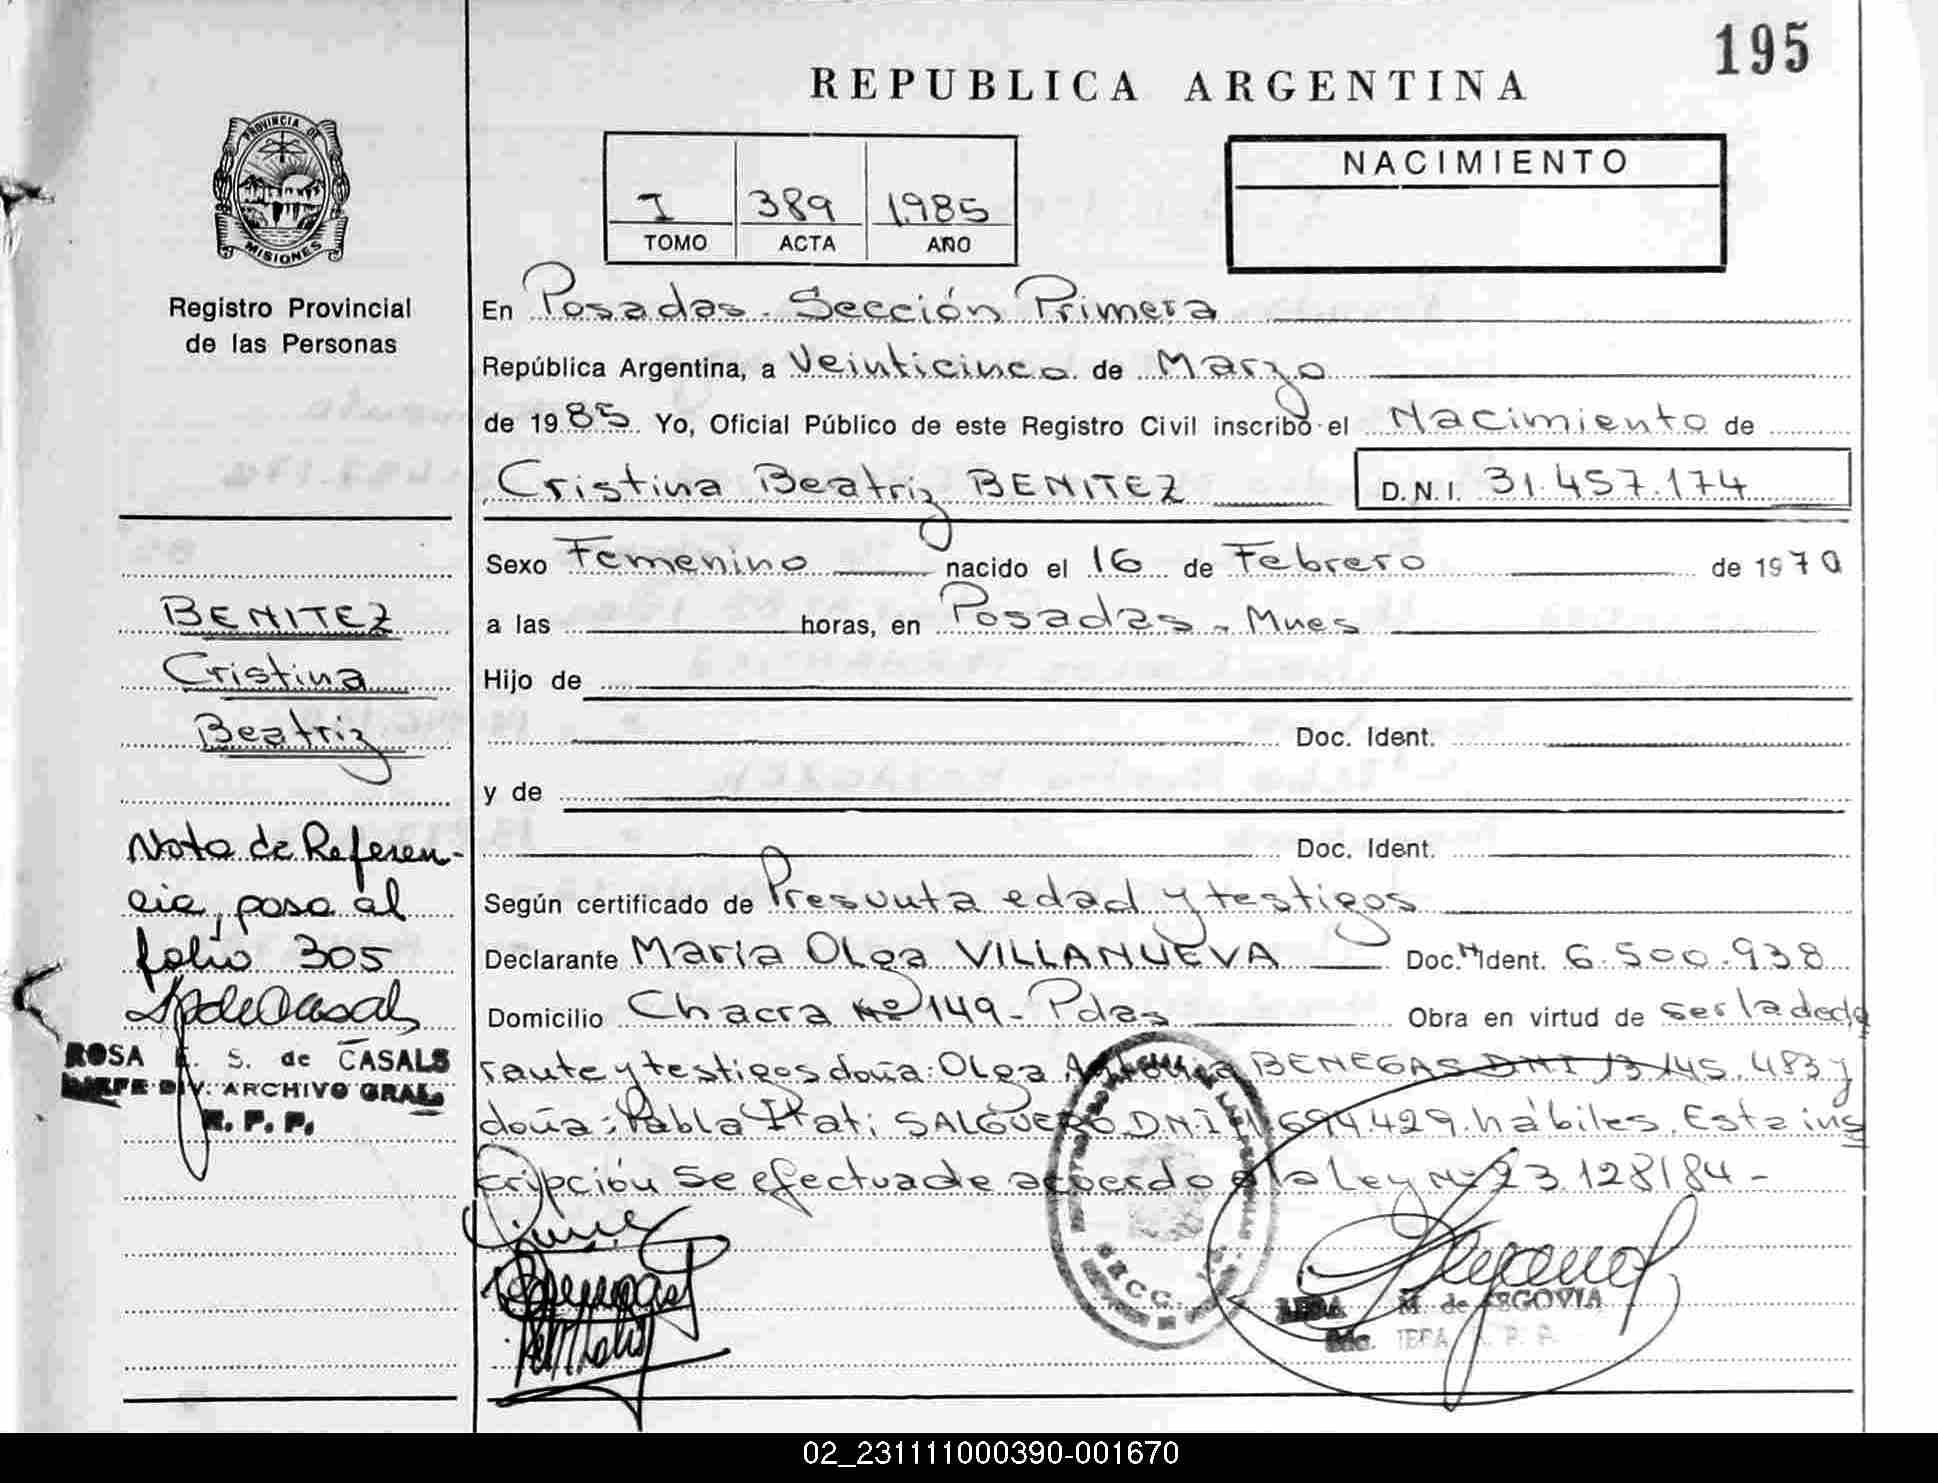 195
REPUBLICA ARGENTINA
PROVINCIA DE
MISIONES
I 389 1985
TOMO ACTA AÑO
NACIMIENTO
Registro Provincial
de las Personas
En Posadas - Sección Primera
República Argentina, a Veinticinco de Marzo
de 1985 Yo, Oficial Público de este Registro Civil inscribo el Nacimiento de
Cristina Beatriz BENITEZ D.N.I. 31.457.174
Sexo Femenino nacido el 16 de Febrero de 1970
a las horas, en Posadas - Mnes
Hijo de
Doc. Ident.
y de
Doc. Ident.
Según certificado de Presunta edad y testigos
Declarante María Olga VILLANUEVA Doc. Ident. 6.500.938
Domicilio Chacra Nº 149 - Pdas Obra en virtud de ser la decla
rante y testigos doña: Olga BENEGAS DNI 13.145.483 y
doña: Pabla Itati SALGUERO D.N.I. 11.694.429 hábiles. Esta ins
cripción se efectua de acuerdo a la Ley Nº 23.128/84 -
BENITEZ
Cristina
Beatriz
Nota de Referen-
cia, pasa al
folio 305
ROSA E. S. de CASALS
JEFE DIV. ARCHIVO GRAL.
R. P. P.
M. de SEGOVIA
02_231111000390-001670